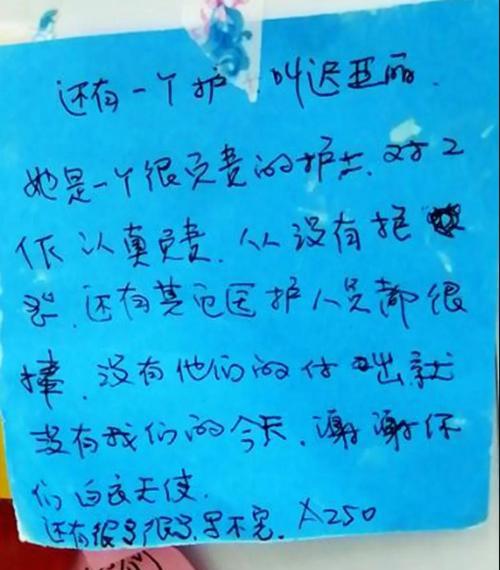 还有一个护 叫迟亚丽.
她是一个很负责的护士.对工
作认真负责.从没有抱
怨.还有其它医护人员都很
棒.没有他们的付出就
没有我们的今天.谢谢你
们白衣天使.
还有很多很多.写不完. A250